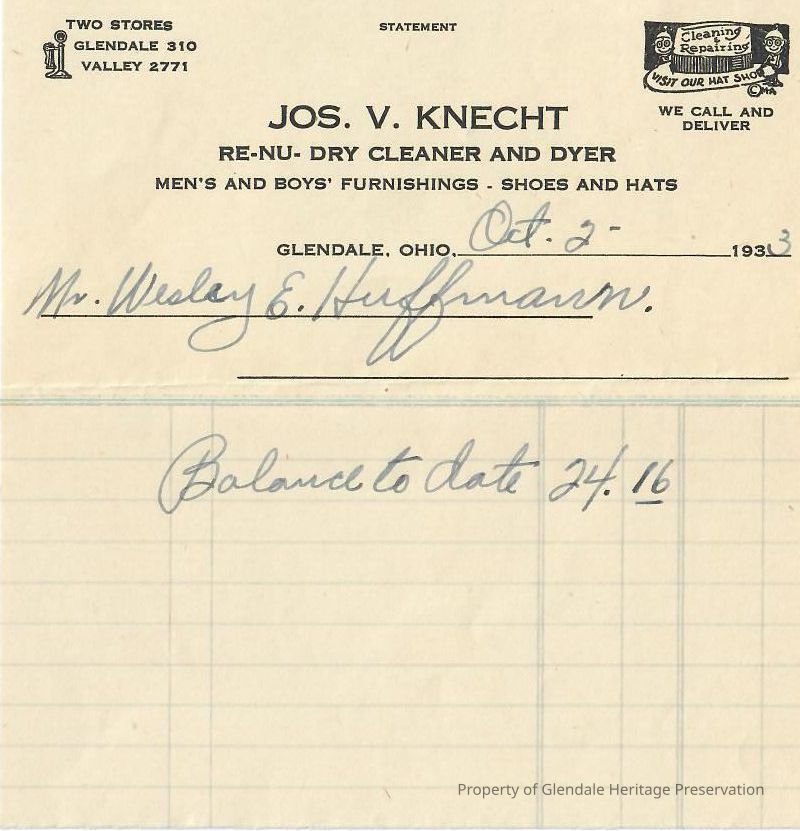 TWO STORES
GLENDALE 310
VALLEY 2771
STATEMENT
Cleaning
&
Repairing
VISIT OUR HAT SHOP
©MA
WE CALL AND
DELIVER
JOS. V. KNECHT
RE-NU- DRY CLEANER AND DYER
MEN'S AND BOYS' FURNISHINGS - SHOES AND HATS
GLENDALE, OHIO, Oct. 2- 1933
Mr. Wesley E. Huffmann.
Balance to date 24.16
Property of Glendale Heritage Preservation